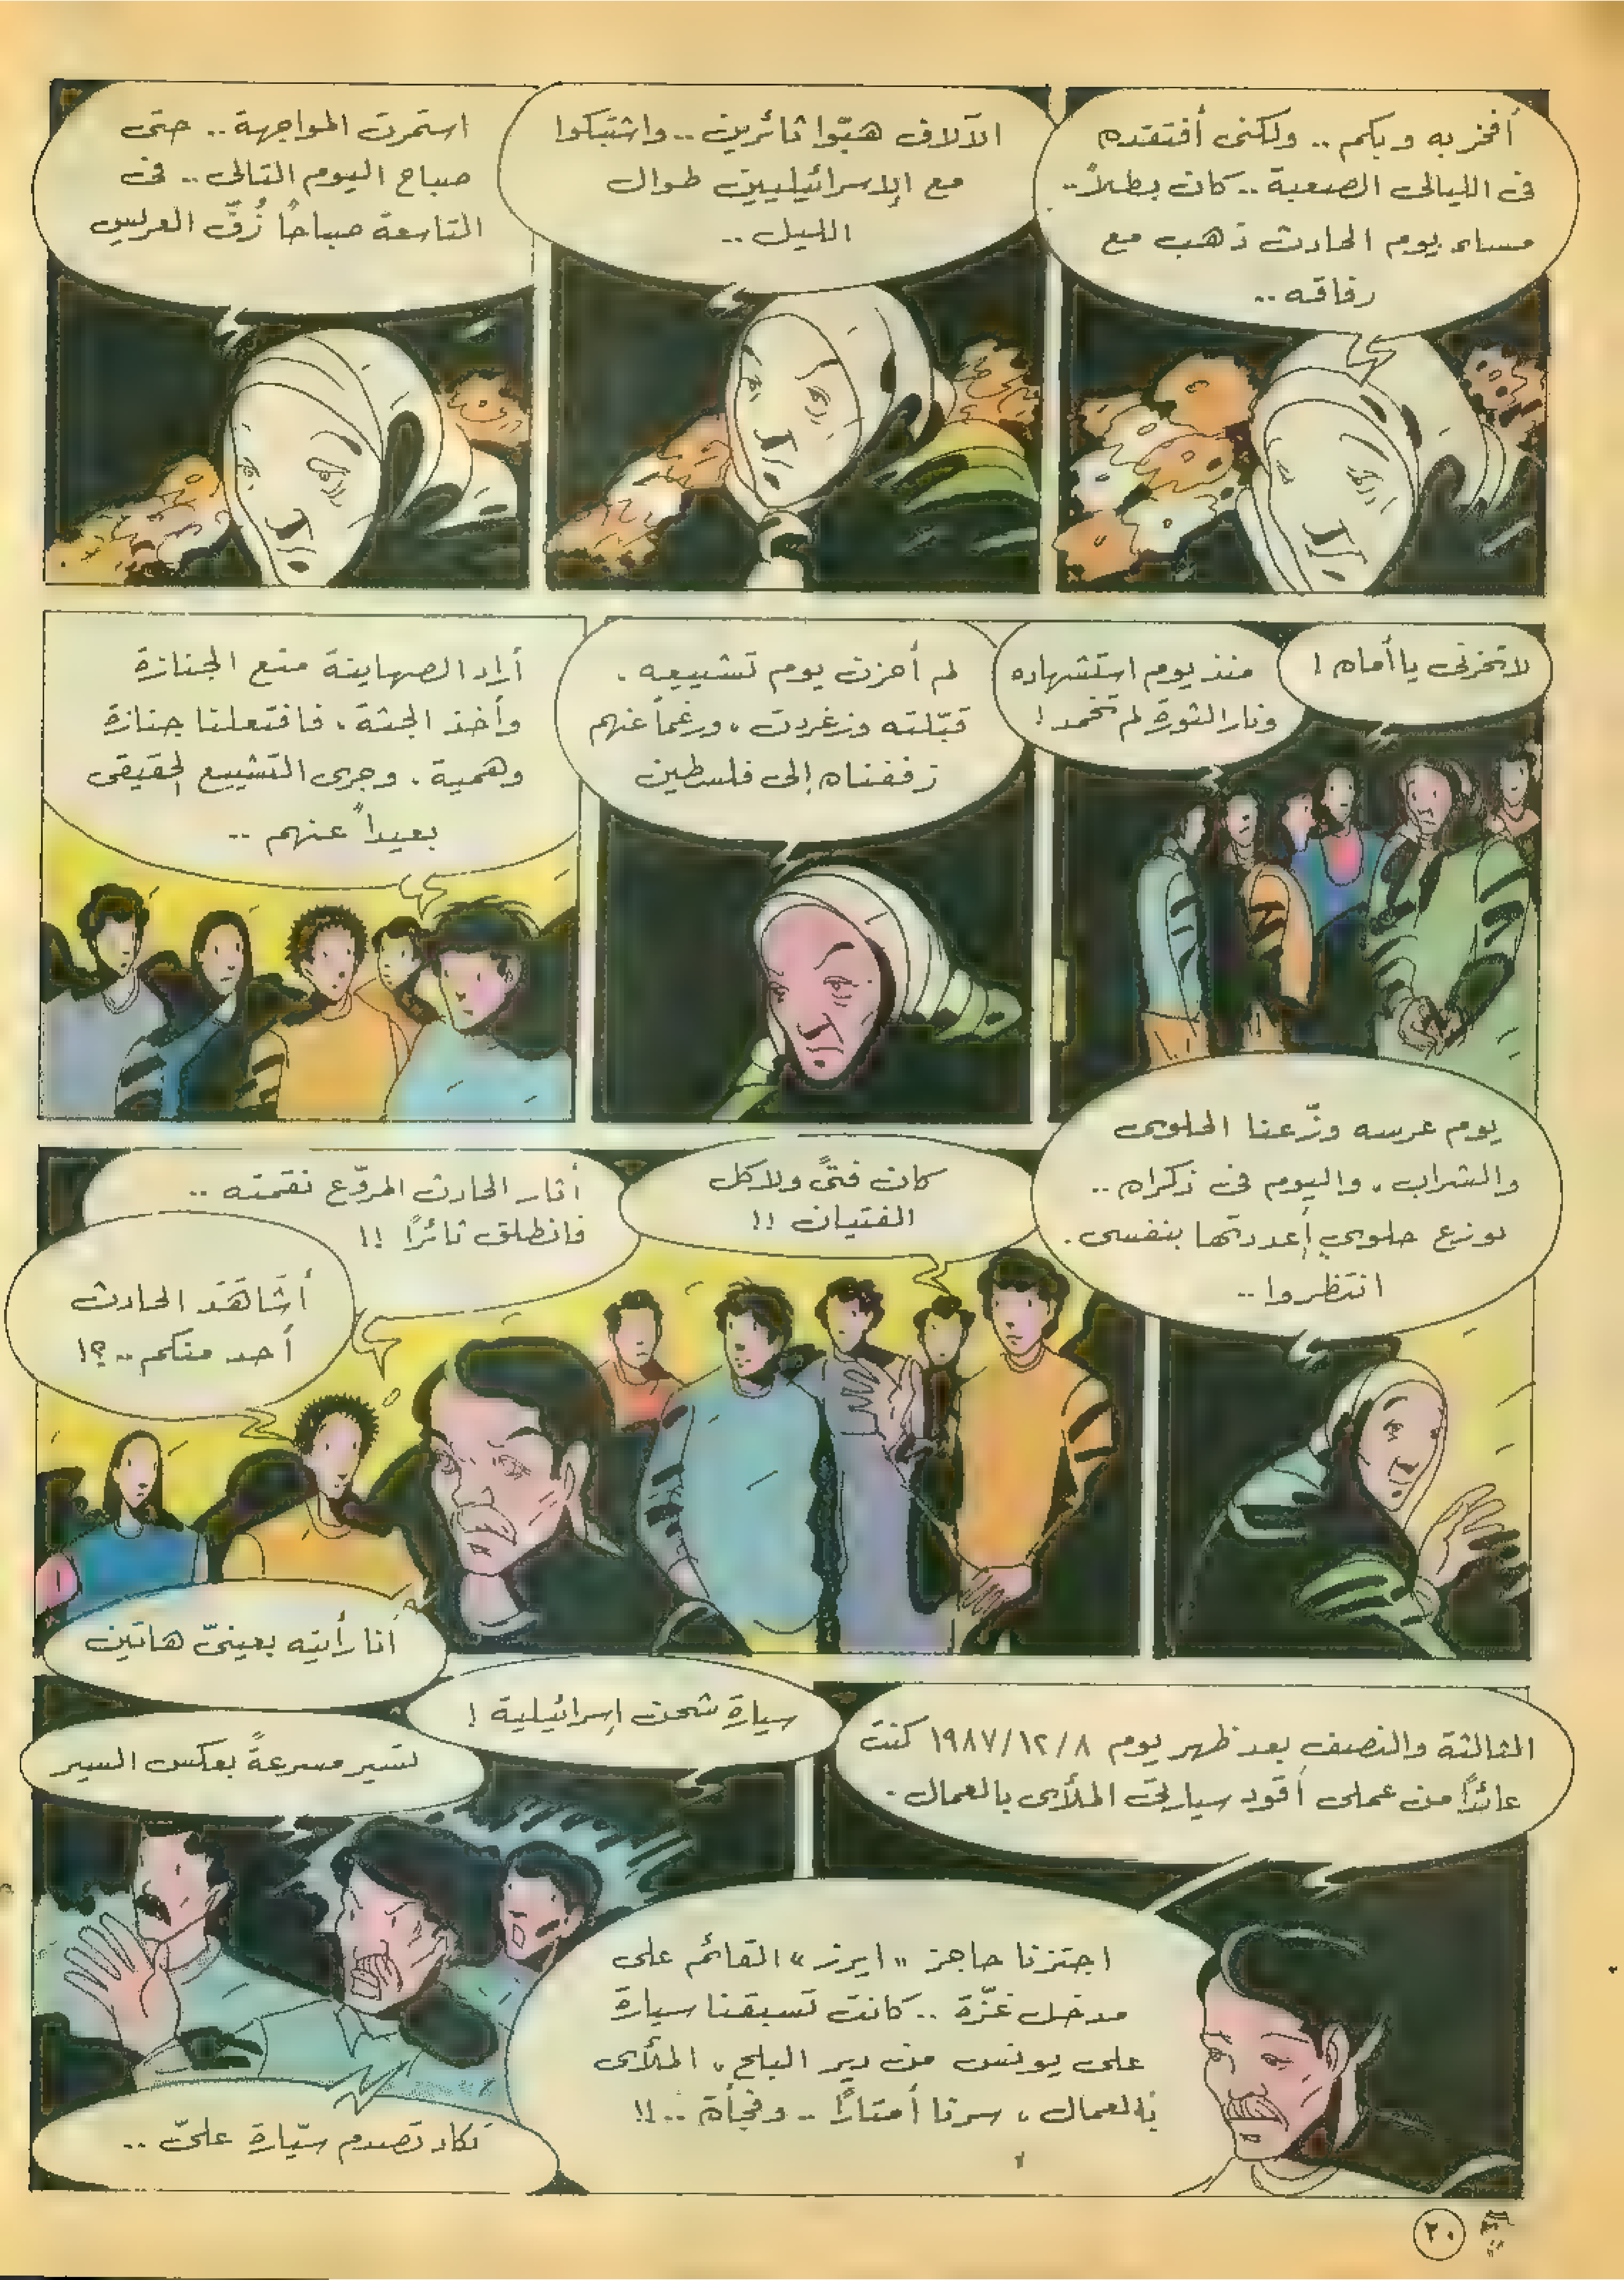 أفخر به وبكم .. ولكنى أفتقدم
فى الليالى الصعبة .. كان بطلاً ..
مساء يوم الحادث ذهب مع
رفاقه ..
الآلاف هبّوا ثائرين .. واشتبكوا
مع الإسرائيليين طوال
الليل ..
استمرت المواجهة .. حتى
صباح اليوم التالى .. فى
التاسعة صباحاً زُفّ العريس
لا تحزنى يا أماه !
منذ يوم استشهاده
ونار الثورة لم تخمد !
لم أحزن يوم تشييعه .
قبّلته وزغردت ، ورغماً عنهم
زففناه إلى فلسطين
أراد الصهاينة منع الجنازة
وأخذ الجثة ، فافتعلنا جنازة
وهمية . وجرى التشييع الحقيقى
بعيداً عنهم ..
يوم عرسه وزّعنا الحلوى
والشراب ، واليوم فى ذكراه ..
نوزع حلوى أعددتها بنفسى .
انتظروا ..
كان فتىً ولا كل
الفتيان !!
أثار الحادث المروّع نقمته ..
فانطلق ثائراً !!
أشاهَدَ الحادث
أحد منكم .. ؟!
أنا رأيته بعينىّ هاتين
الثالثة والنصف بعد ظهر يوم ١٩٨٧/١٢/٨ كنت
عائداً من عملى أقود سيارتى الملأى بالعمال .
اجتزنا حاجز « ايرز » القائم على
مدخل غزّة .. كانت تسبقنا سيارة
على يونس من دير البلح ، الملأى
بالعمال ، سرنا أمتاراً .. وفجأة .. !!
سيارة شحن إسرائيلية !
تسير مسرعةً بعكس السير
تكاد تصدم سيّارة علىّ ..
٢٠